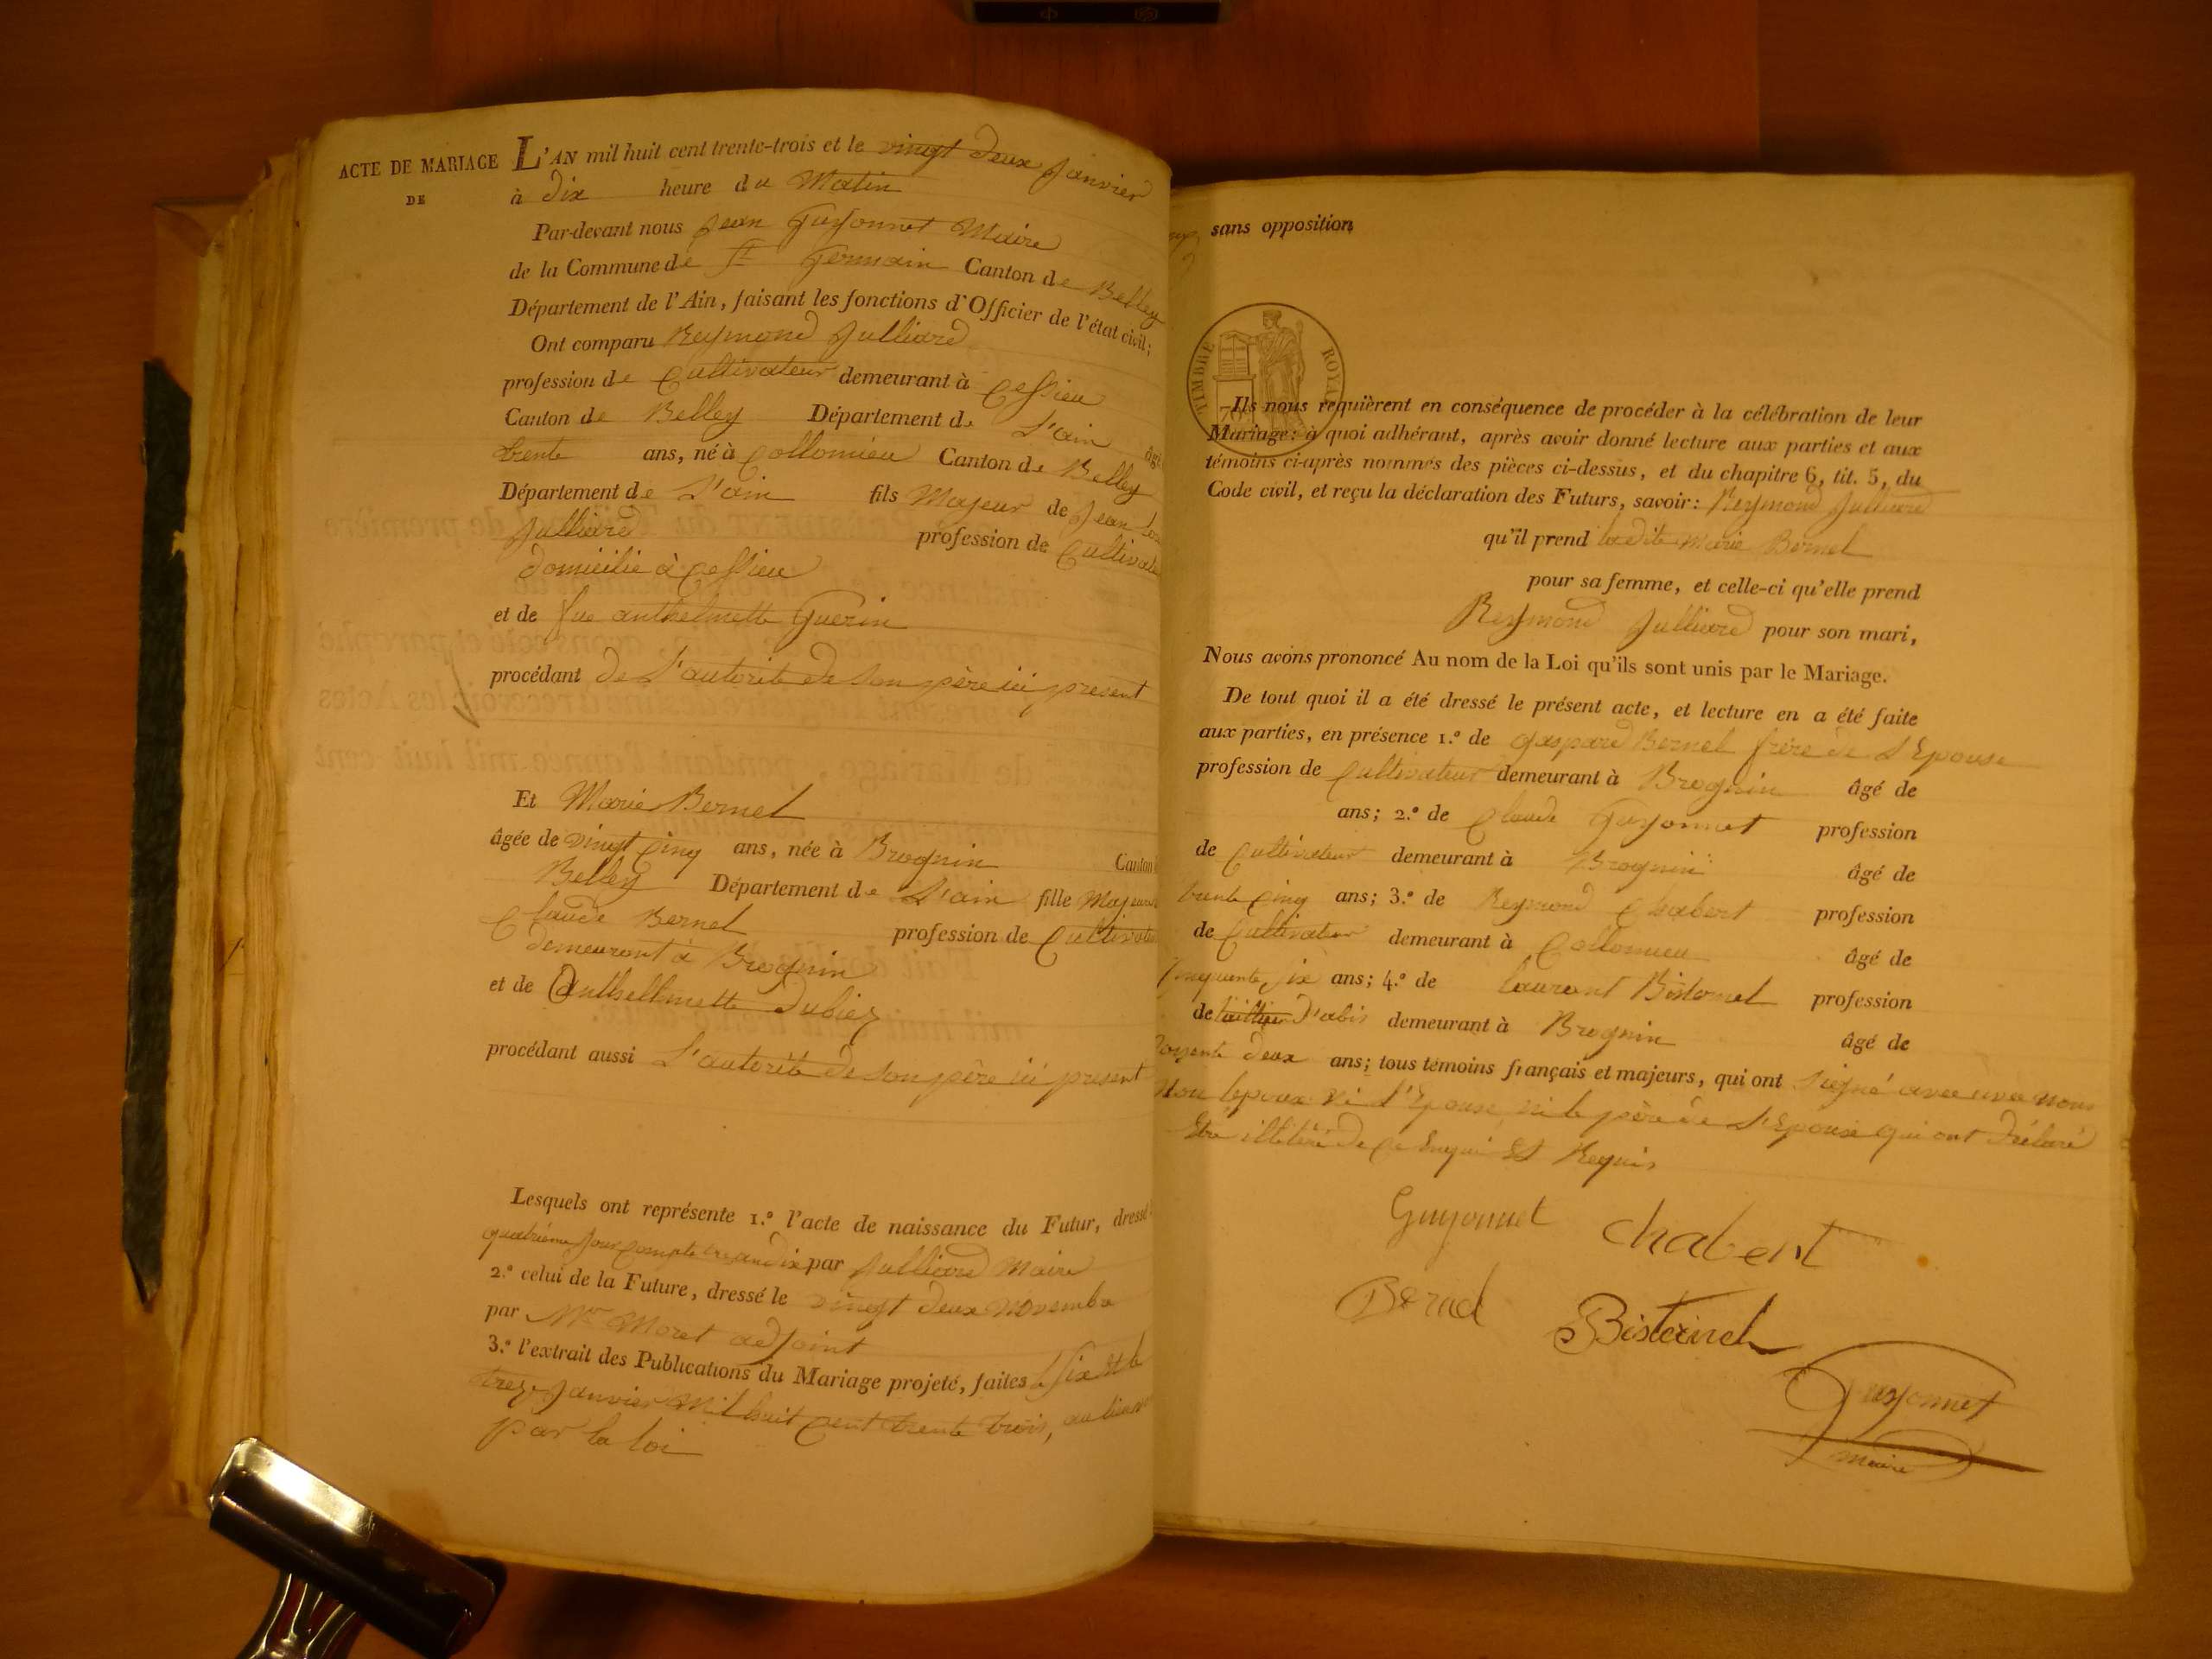 ACTE DE MARIAGE
DE
L'AN mil huit cent trente-trois et le vingt deux Janvier
à dix heure du Matin
Par-devant nous Jean Guyonnet Maire
de la Commune de St Germain Canton de Belley
Département de l'Ain, faisant les fonctions d'Officier de l'état civil;
Ont comparu Reymond Julliard
profession de Cultivateur demeurant à Cessieu
Canton de Belley Département de L'ain âgé
trente ans, né à Collomieu Canton de Belley
Département de L'ain fils Majeur de Jean
Julliard profession de
domicilié à Cessieu
et de fue anthelmette Guerin
procédant de L'autorité de Son père ici present
Et Marie Bernel
âgée de vingt Cinq ans, née à Brognin Canton
Belley Département de L'ain fille
Claude Bernel profession de
demeurant à Brognin
et de Anthellmette Dubiez
procédant aussi L'autorité de Son père ici present
Lesquels ont représente 1.º l'acte de naissance du Futur, dressé
quatrième Jour an dix par Julliard Maire
2.º celui de la Future, dressé le vingt deux novembre
par Mr Moret adjoint
3.º l'extrait des Publications du Mariage projeté, faites le Six et le
treze Janvier Mil huit Cent trente trois, au
par la loi
sans opposition
TIMBRE ROYAL
70
Ils nous requièrent en conséquence de procéder à la célébration de leur
Mariage: à quoi adhérant, après avoir donné lecture aux parties et aux
témoins ci-après nommés des pièces ci-dessus, et du chapitre 6, tit. 5, du
Code civil, et reçu la déclaration des Futurs, savoir: Reymond Julliard
qu'il prend ladite Marie Bernel
pour sa femme, et celle-ci qu'elle prend
Reymond Julliard pour son mari,
Nous avons prononcé Au nom de la Loi qu'ils sont unis par le Mariage.
De tout quoi il a été dressé le présent acte, et lecture en a été faite
aux parties, en présence 1.º de gaspard Bernel frère de L'Epouse
profession de Cultivateur demeurant à Brognin âgé de
ans; 2.º de Claude Guyonnet profession
de Cultivateur demeurant à Brognin âgé de
trente Cinq ans; 3.º de Reymond Chabert profession
de Cultivateur demeurant à Collomieu âgé de
Cinquente Six ans; 4.º de Laurent Bisternel profession
de d'abis demeurant à Brognin âgé de
deux ans; tous témoins français et majeurs, qui ont Signé avec avec nous
Non lepoux ni L'Epouse, ni le père de L'Epouse qui ont Déclaré
Etre illitéré de Ce Enquis Et Requis
Guyonnet Chabert
Bernel Bisternel
Guyonnet
maire